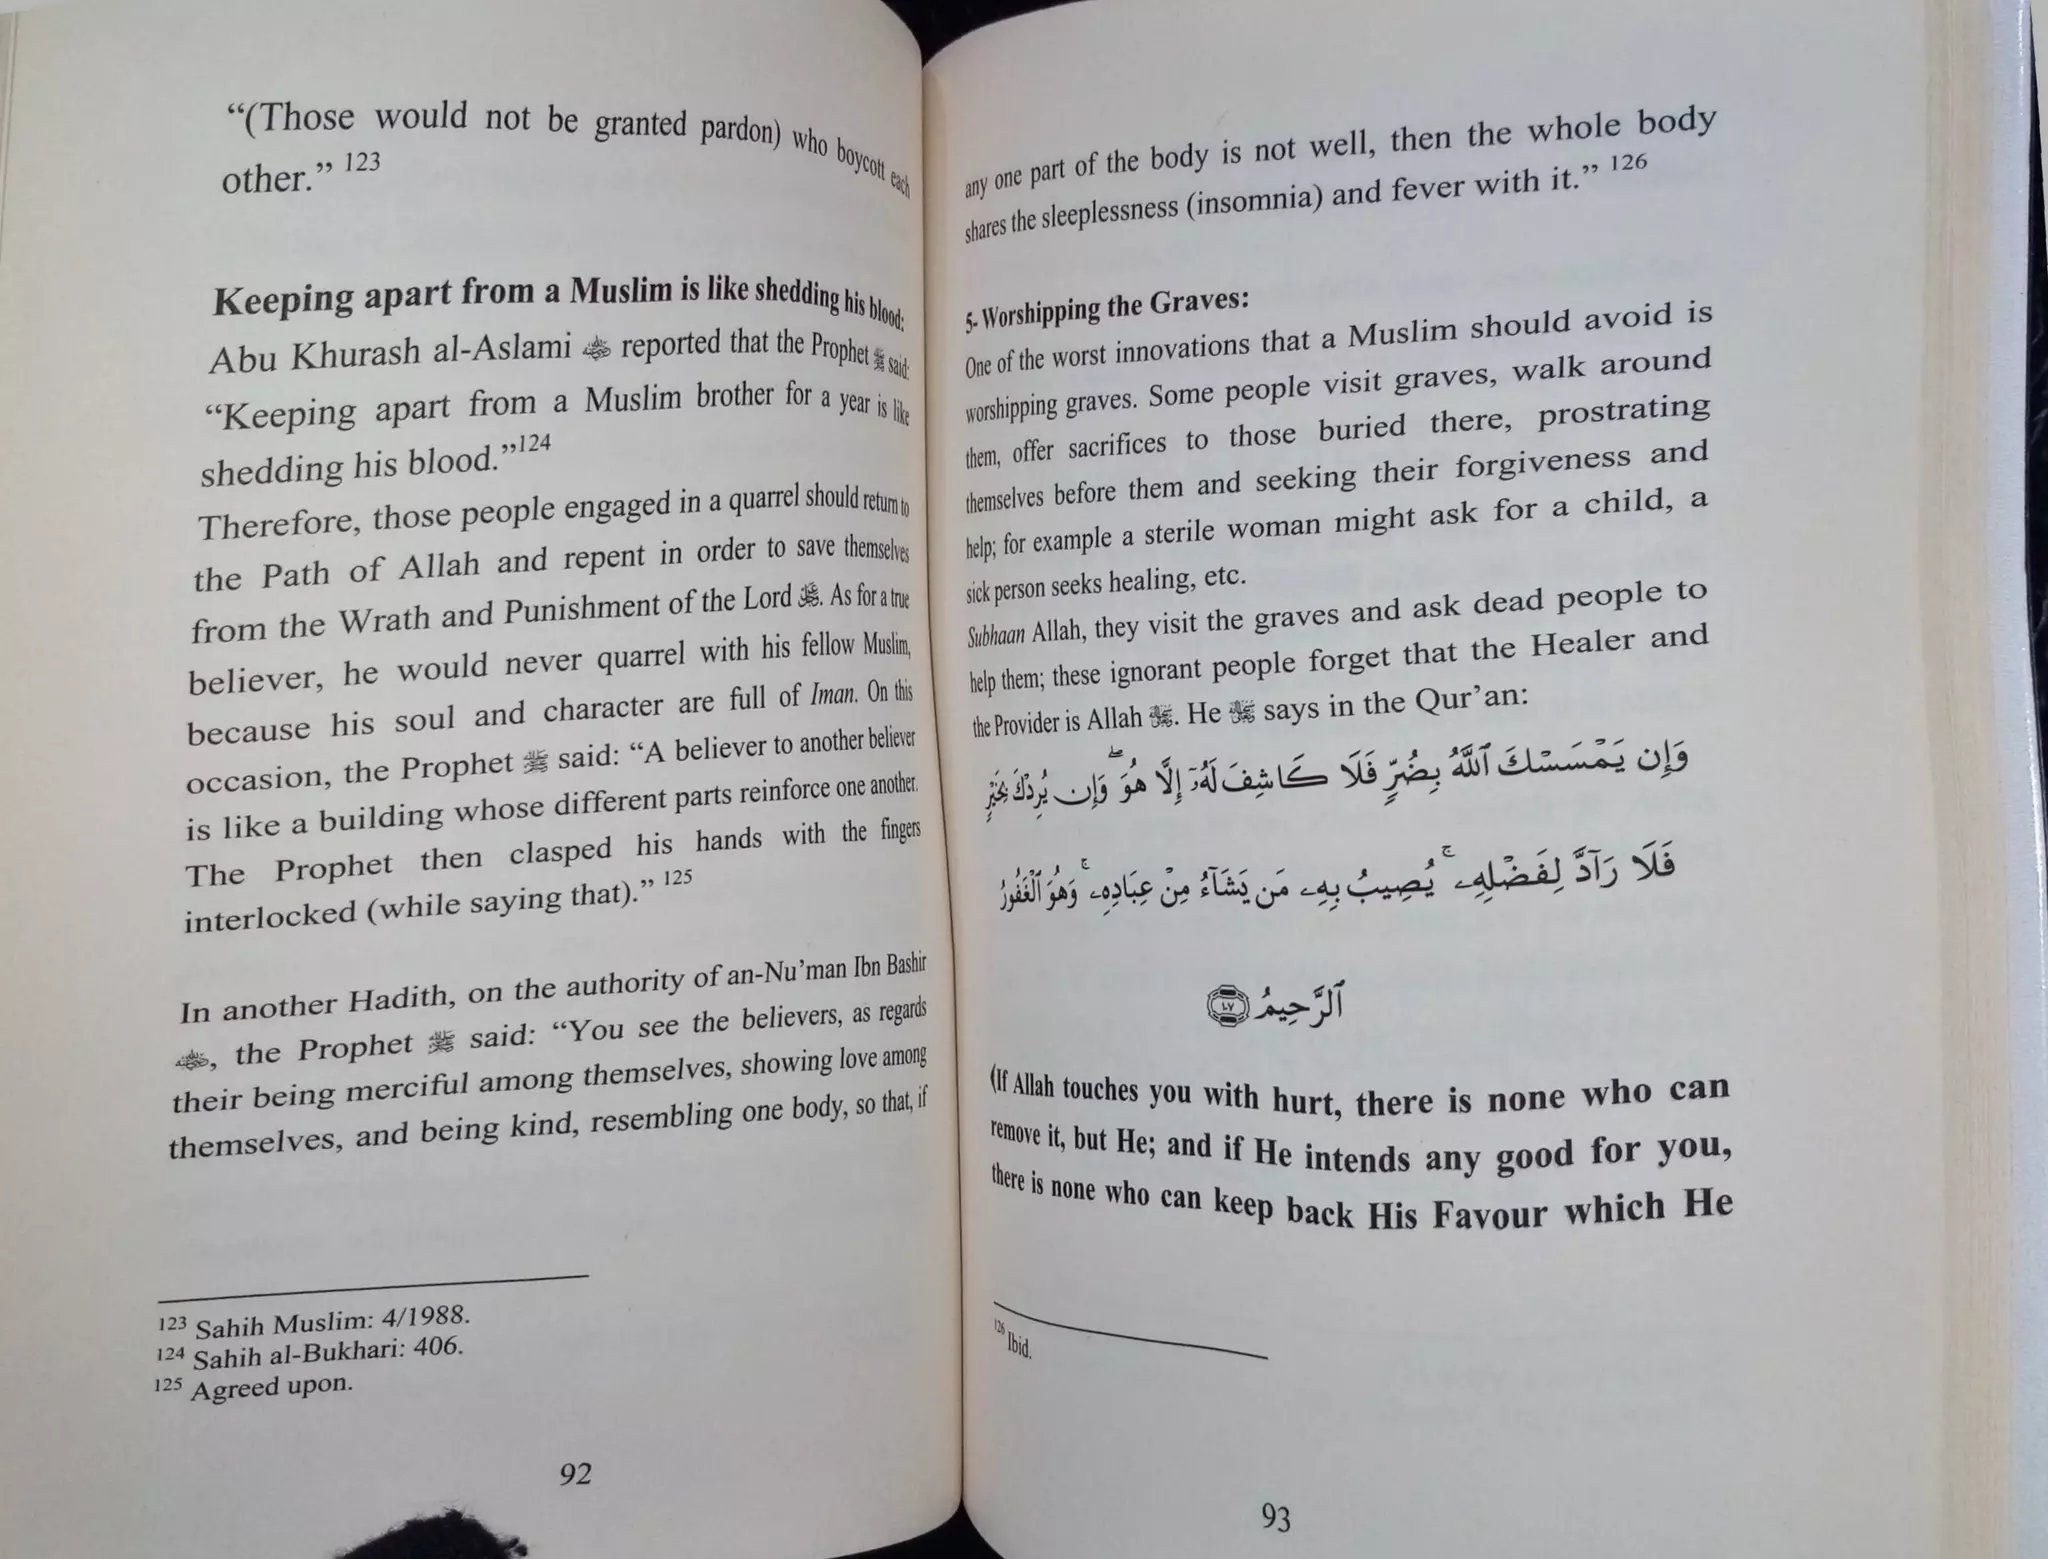 “(Those would not be granted pardon) who boycott each
other.” 123
Keeping apart from a Muslim is like shedding his blood:
Abu Khurash al-Aslami ﷜ reported that the Prophet ﷺ said:
“Keeping apart from a Muslim brother for a year is like
shedding his blood.”124
Therefore, those people engaged in a quarrel should return to
the Path of Allah and repent in order to save themselves
from the Wrath and Punishment of the Lord ﷻ. As for a true
believer, he would never quarrel with his fellow Muslim,
because his soul and character are full of Iman. On this
occasion, the Prophet ﷺ said: “A believer to another believer
is like a building whose different parts reinforce one another.
The Prophet then clasped his hands with the fingers
interlocked (while saying that).” 125
In another Hadith, on the authority of an-Nu’man Ibn Bashir
﷜, the Prophet ﷺ said: “You see the believers, as regards
their being merciful among themselves, showing love among
themselves, and being kind, resembling one body, so that, if
123 Sahih Muslim: 4/1988.
124 Sahih al-Bukhari: 406.
125 Agreed upon.
92
any one part of the body is not well, then the whole body
shares the sleeplessness (insomnia) and fever with it.” 126
5- Worshipping the Graves:
One of the worst innovations that a Muslim should avoid is
worshipping graves. Some people visit graves, walk around
them, offer sacrifices to those buried there, prostrating
themselves before them and seeking their forgiveness and
help; for example a sterile woman might ask for a child, a
sick person seeks healing, etc.
Subhaan Allah, they visit the graves and ask dead people to
help them; these ignorant people forget that the Healer and
the Provider is Allah ﷻ. He ﷻ says in the Qur’an:
وَإِن يَمْسَسْكَ ٱللَّهُ بِضُرٍّ فَلَا كَاشِفَ لَهُۥٓ إِلَّا هُوَ ۖ وَإِن يُرِدْكَ بِخَيْرٍ
فَلَا رَآدَّ لِفَضْلِهِۦ ۚ يُصِيبُ بِهِۦ مَن يَشَآءُ مِنْ عِبَادِهِۦ ۚ وَهُوَ ٱلْغَفُورُ
ٱلرَّحِيمُ ١٠٧
(If Allah touches you with hurt, there is none who can
remove it, but He; and if He intends any good for you,
there is none who can keep back His Favour which He
126 Ibid.
93